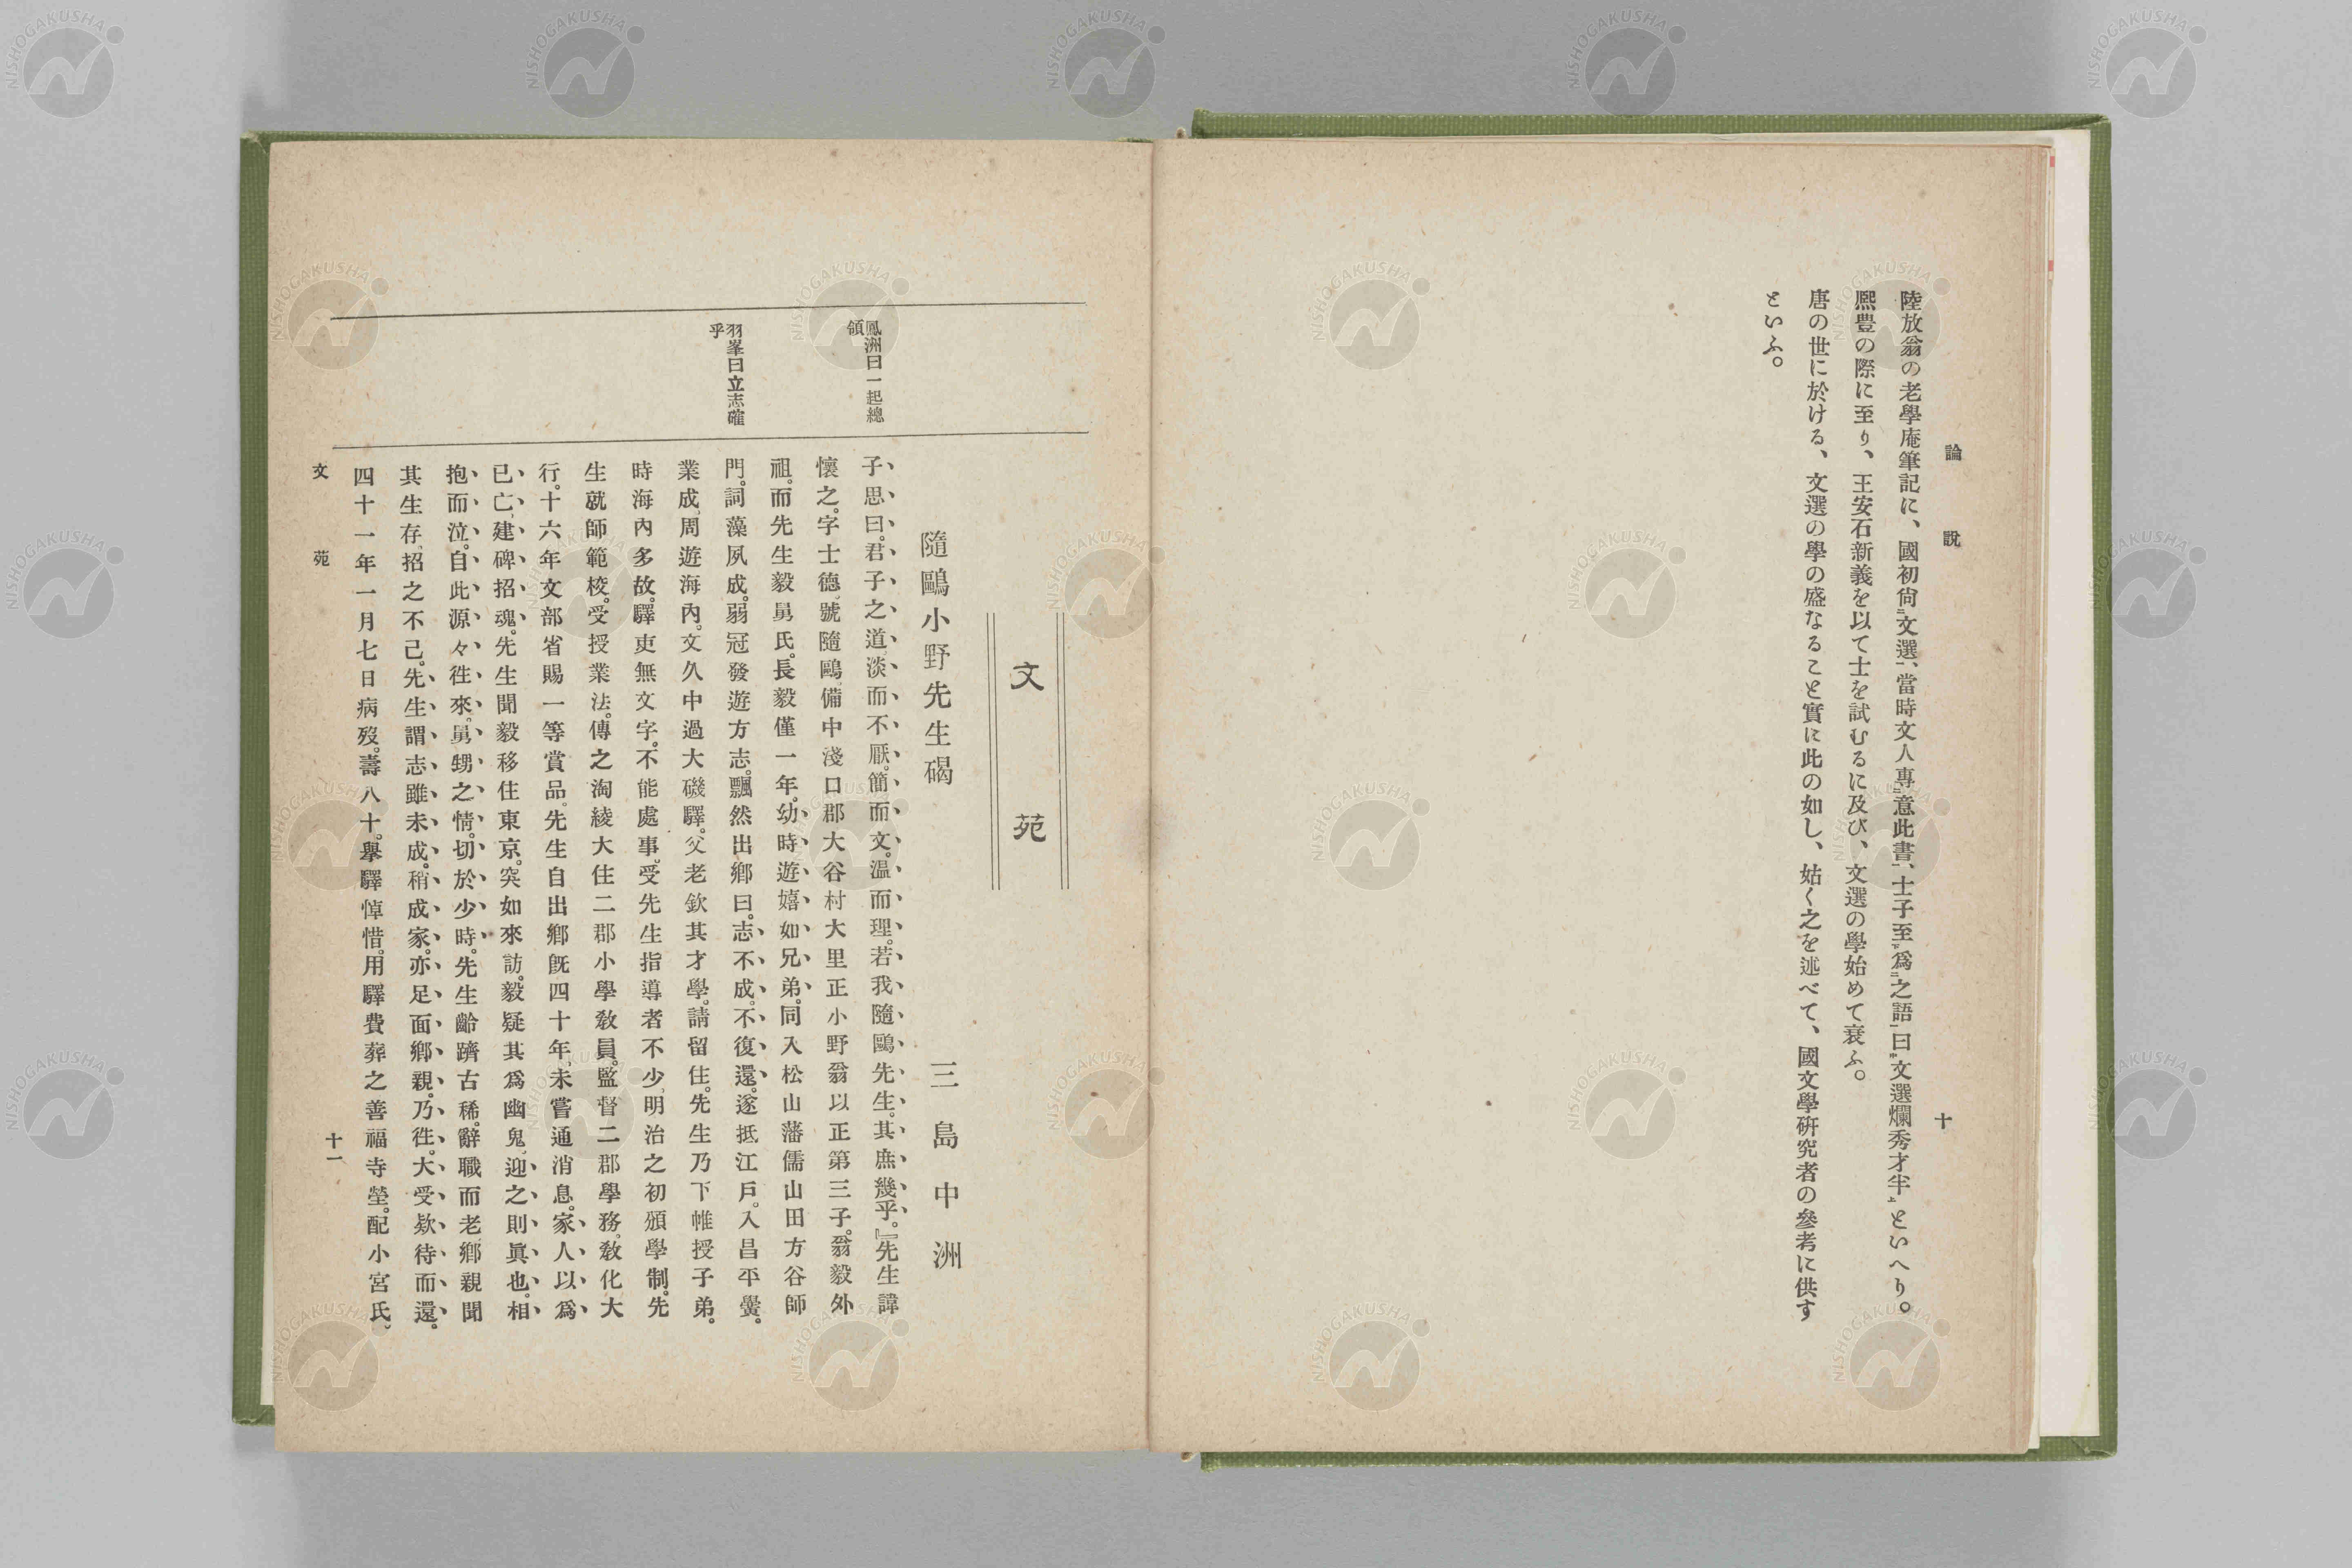 論說
十
陸放翁の老學庵筆記に、國初尙㆓文選㆒、當時文人專㆓意此書㆒、士子至㆑爲㆓之語㆒曰㆘文選爛秀才半㆖といへり。
熙豐の際に至り、王安石新義を以て士を試むるに及び、文選の學始めて衰ふ。
唐の世に於ける、文選の學の盛なること實に此の如し、姑く之を述べて、國文學硏究者の參考に供す
といふ。
文苑
隨鷗小野先生碣
三島中洲
鳳洲曰一起總
領
羽峯曰立志確
乎
子思曰。君子之道、淡而不厭。簡而文。溫而理。若我隨鷗先生。其庶幾乎。』先生諱
懷之。字士德、號隨鷗、備中淺口郡大谷村大里正小野翁以正第三子。翁毅外
祖。而先生毅舅氏。長毅僅一年。幼時遊嬉如兄弟。同入松山藩儒山田方谷師
門。詞藻夙成。弱冠發遊方志。飄然出鄕曰。志不成。不復還。遂抵江戶。入昌平黌。
業成、周遊海內。文久中過大磯驛。父老欽其才學。請留住。先生乃下帷授子弟。
時海內多故。驛吏無文字。不能處事。受先生指導者不少、明治之初頒學制。先
生就師範校。受授業法。傳之淘綾大住二郡小學敎員。監督二郡學務。敎化大
行。十六年文部省賜一等賞品。先生自出鄕旣四十年、未嘗通消息。家人以爲
已亡、建碑招魂。先生聞毅移住東京。突如來訪。毅疑其爲幽鬼、迎之則眞也。相
抱而泣。自此源々徃來。舅甥之情。切於少時。先生齡躋古稀。辭職而老、鄕親聞
其生存、招之不已。先生謂志雖未成。稍成家。亦足面鄕親。乃徃。大受欵待而還。
四十一年一月七日病歿。壽八十。擧驛悼惜。用驛費葬之善福寺塋。配小宮氏、
文苑
十一
NISHOGAKUSHA